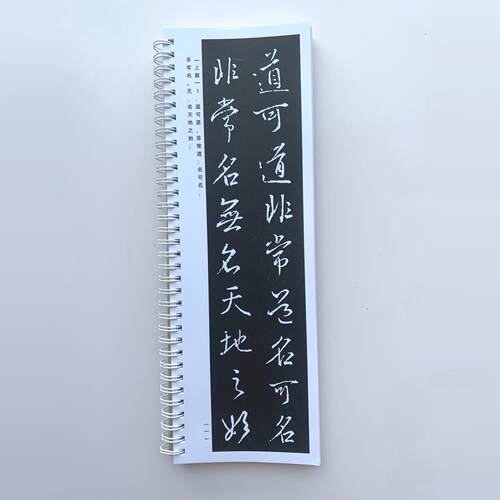 道可道非常道名可名
非常名無名天地之始
【上篇】1.道可道，非常道；名可名，
非常名。无，名天地之始；
（一）